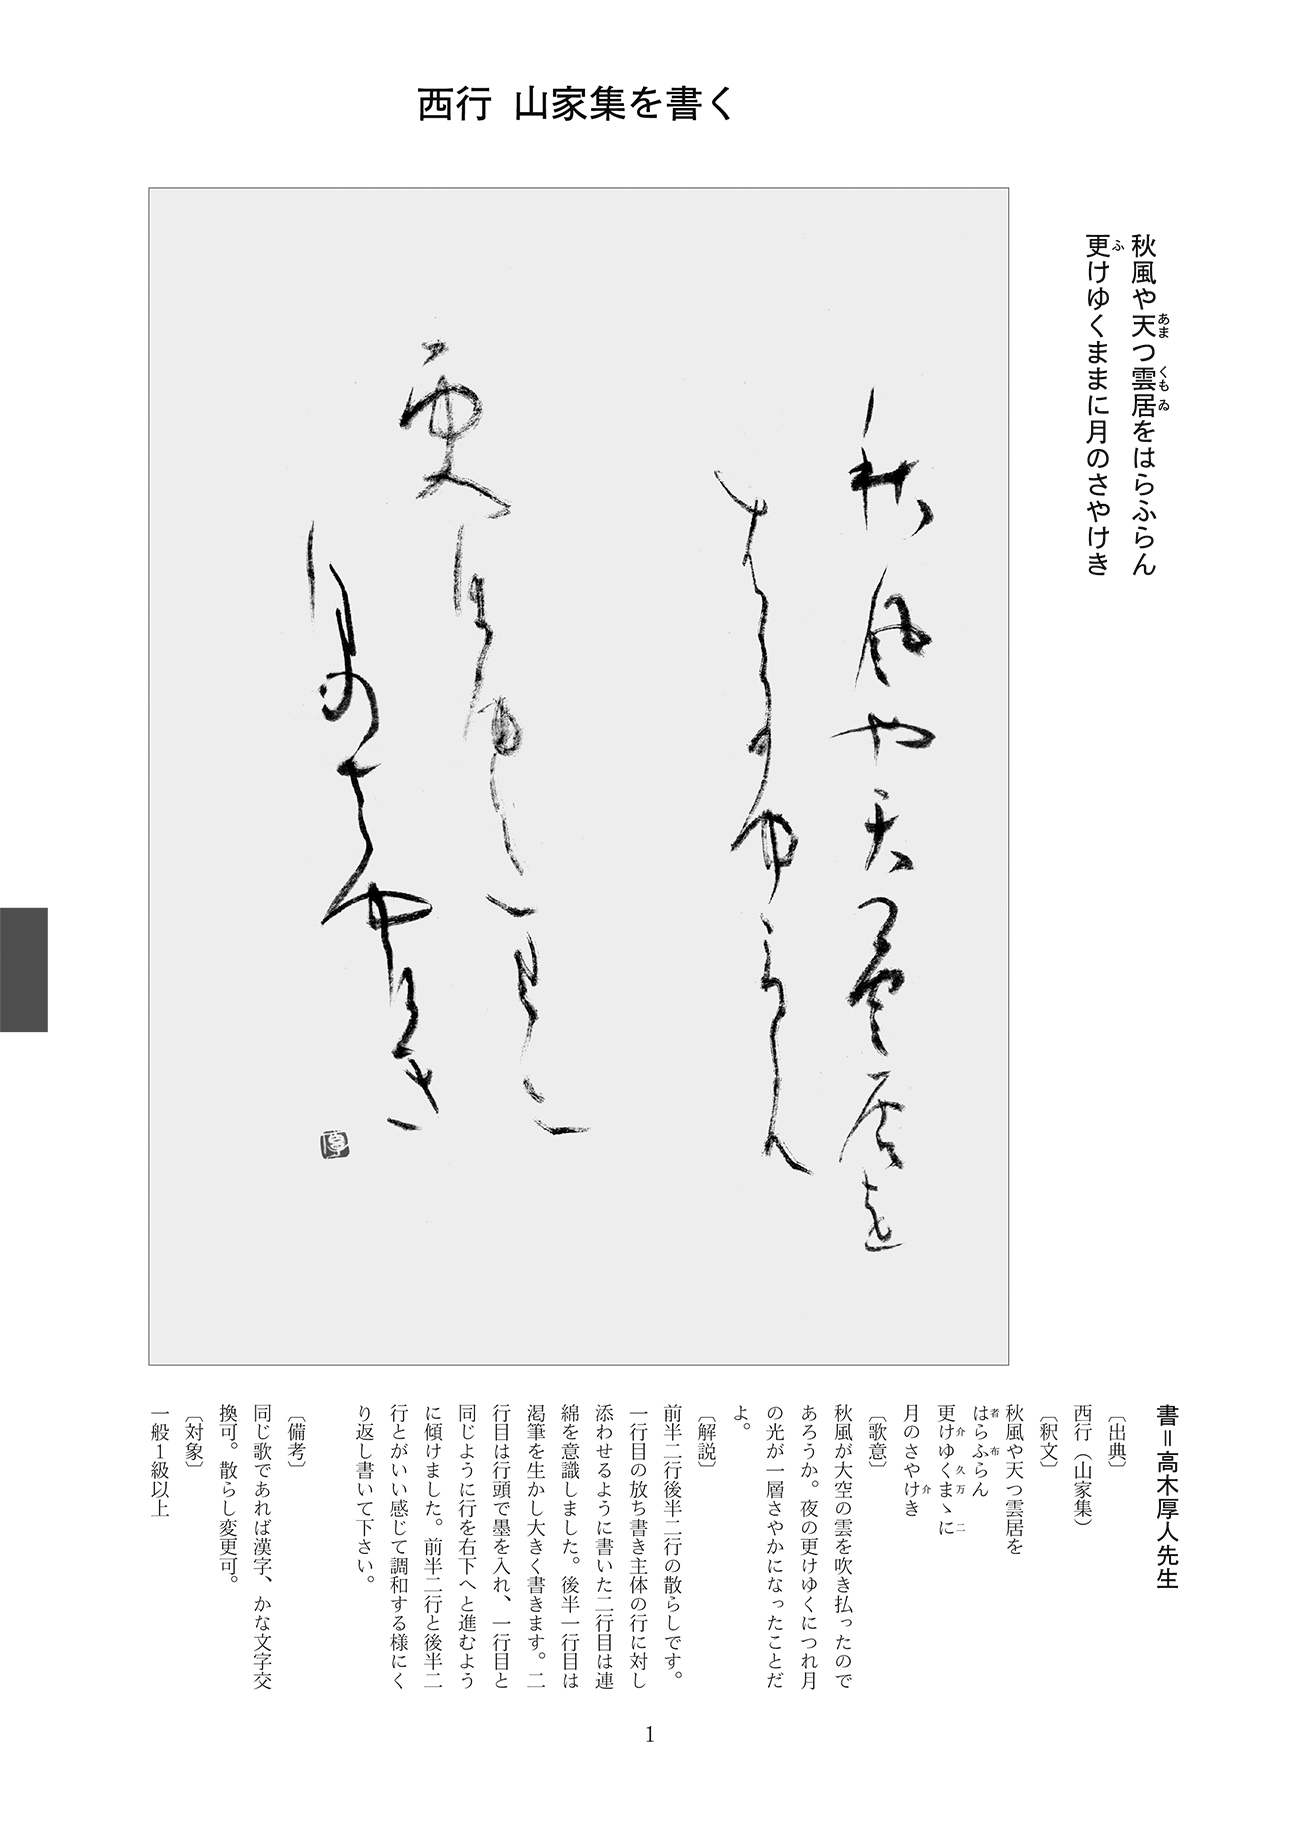 西行 山家集を書く
秋風や天つ雲居をはらふらん
あま くも ゐ
更けゆくままに月のさやけき
ふ
秋風や天つ雲居を
者らふらん
更介ゆくまゝ二
月のさや介き
厚
書＝高木厚人先生
〔出典〕
西行（山家集）
〔釈文〕
秋風や天つ雲居を
はらふらん
者 布
更けゆくまゝに
介 久 万 二
月のさやけき
介
〔歌意〕
秋風が大空の雲を吹き払ったので
あろうか。夜の更けゆくにつれ月
の光が一層さやかになったことだ
よ。
〔解説〕
前半二行後半二行の散らしです。
一行目の放ち書き主体の行に対し
添わせるように書いた二行目は連
綿を意識しました。後半一行目は
渇筆を生かし大きく書きます。二
行目は行頭で墨を入れ、一行目と
同じように行を右下へと進むよう
に傾けました。前半二行と後半二
行とがいい感じて調和する様にく
り返し書いて下さい。
〔備考〕
同じ歌であれば漢字、かな文字交
換可。散らし変更可。
〔対象〕
一般１級以上
1